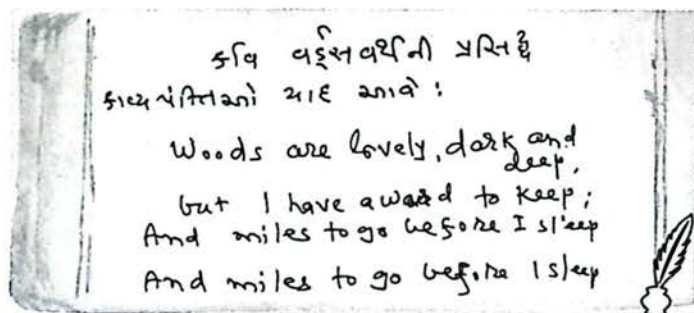 કવિ વર્ડ્સવર્થની પ્રસિદ્ધ
કાવ્યપંક્તિઓ યાદ આવે :
Woods are lovely, dark and
deep,
but I have a word to keep;
And miles to go before I sleep
And miles to go before I sleep